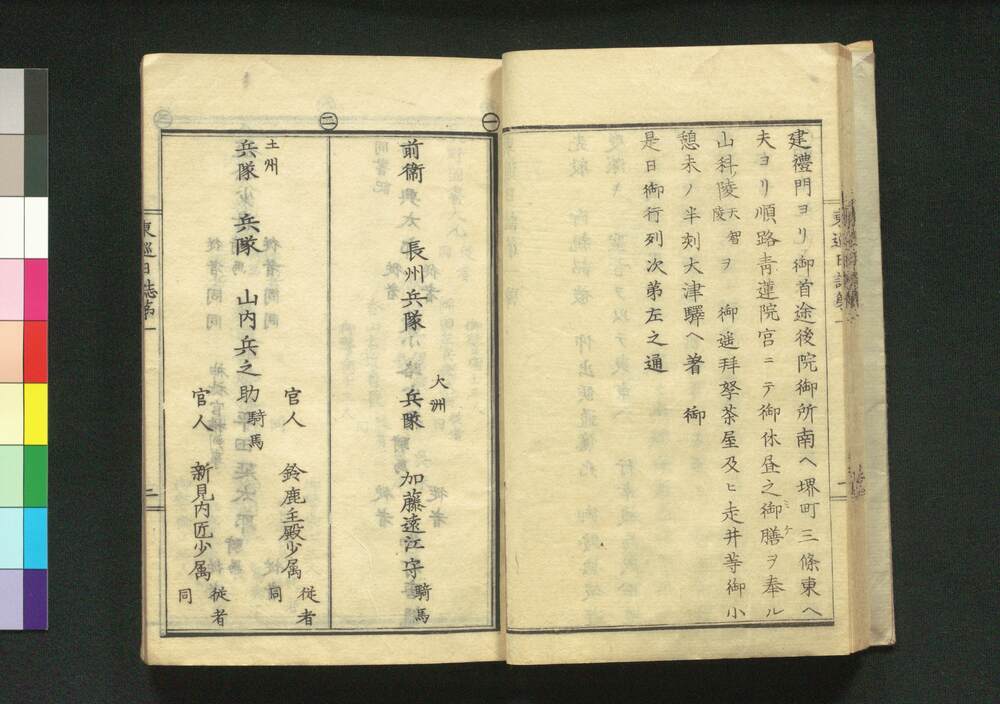 建禮門ヨリ御首途後院御所南ヘ堺町三條東ヘ
夫ヨリ順路靑蓮院宮ニテ御休昼之御膳ヲ奉ル
ミケ
山科陵天智陵ヲ 御遥拜拏茶屋及ヒ走井等御小
憩未ノ半刻大津驛ヘ著 御
是日御行列次第左之通
一
大洲
前衞 長州兵隊 兵隊 加藤遠江守騎馬
二
土州
兵隊 兵隊 山内兵之助騎馬
官人 鈴鹿主殿少属 従者同
官人 新見内匠少属 従者同
三
東巡日誌第一
二